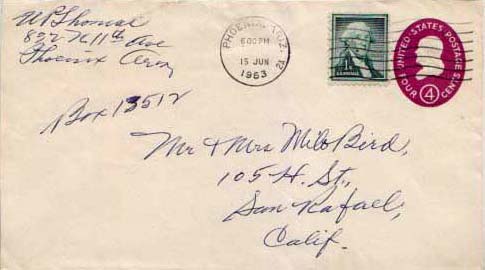 W P Thomas
892 N 11th Ave
Phoenix Ariz
Box 13512
PHOENIX, ARIZ. 21
6:00 PM
15 JUN
1963
1¢
UNITED STATES POSTAGE
FOUR 4 CENTS
Mr & Mrs Milo Bird,
105 H. St.,
San Rafael,
Calif.